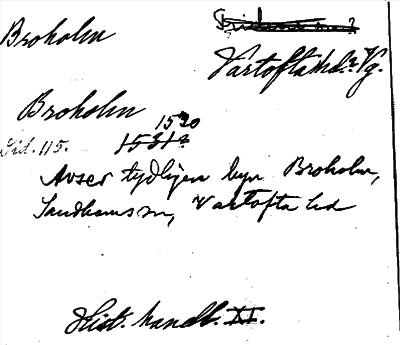 Broholm
Vartofta hd. Vg.
Broholm
1520
Sid. 115. 1531?
Avser tydligen byn Broholm,
Sandhems sn, Vartofta hd
Hist. handl. XI.